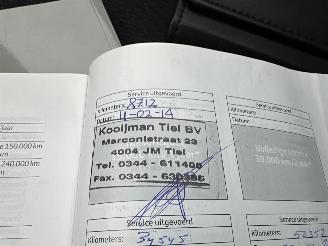 Service uitgevoerd
Kilometers: 8712
Datum: 11-02-14
Kooijman Tiel BV
Marconistraat 23
4004 JM Tiel
Tel. 0344 - 611408
Fax. 0344 - 630396
Service uitgevoerd
Kilometers: 34545
Service uitgevoerd
Kilometers:
Datum:
Volledige service
30.000 km/
Service uitgevoerd
Kilometers:
jaar
e 150.000 km
240.000 km